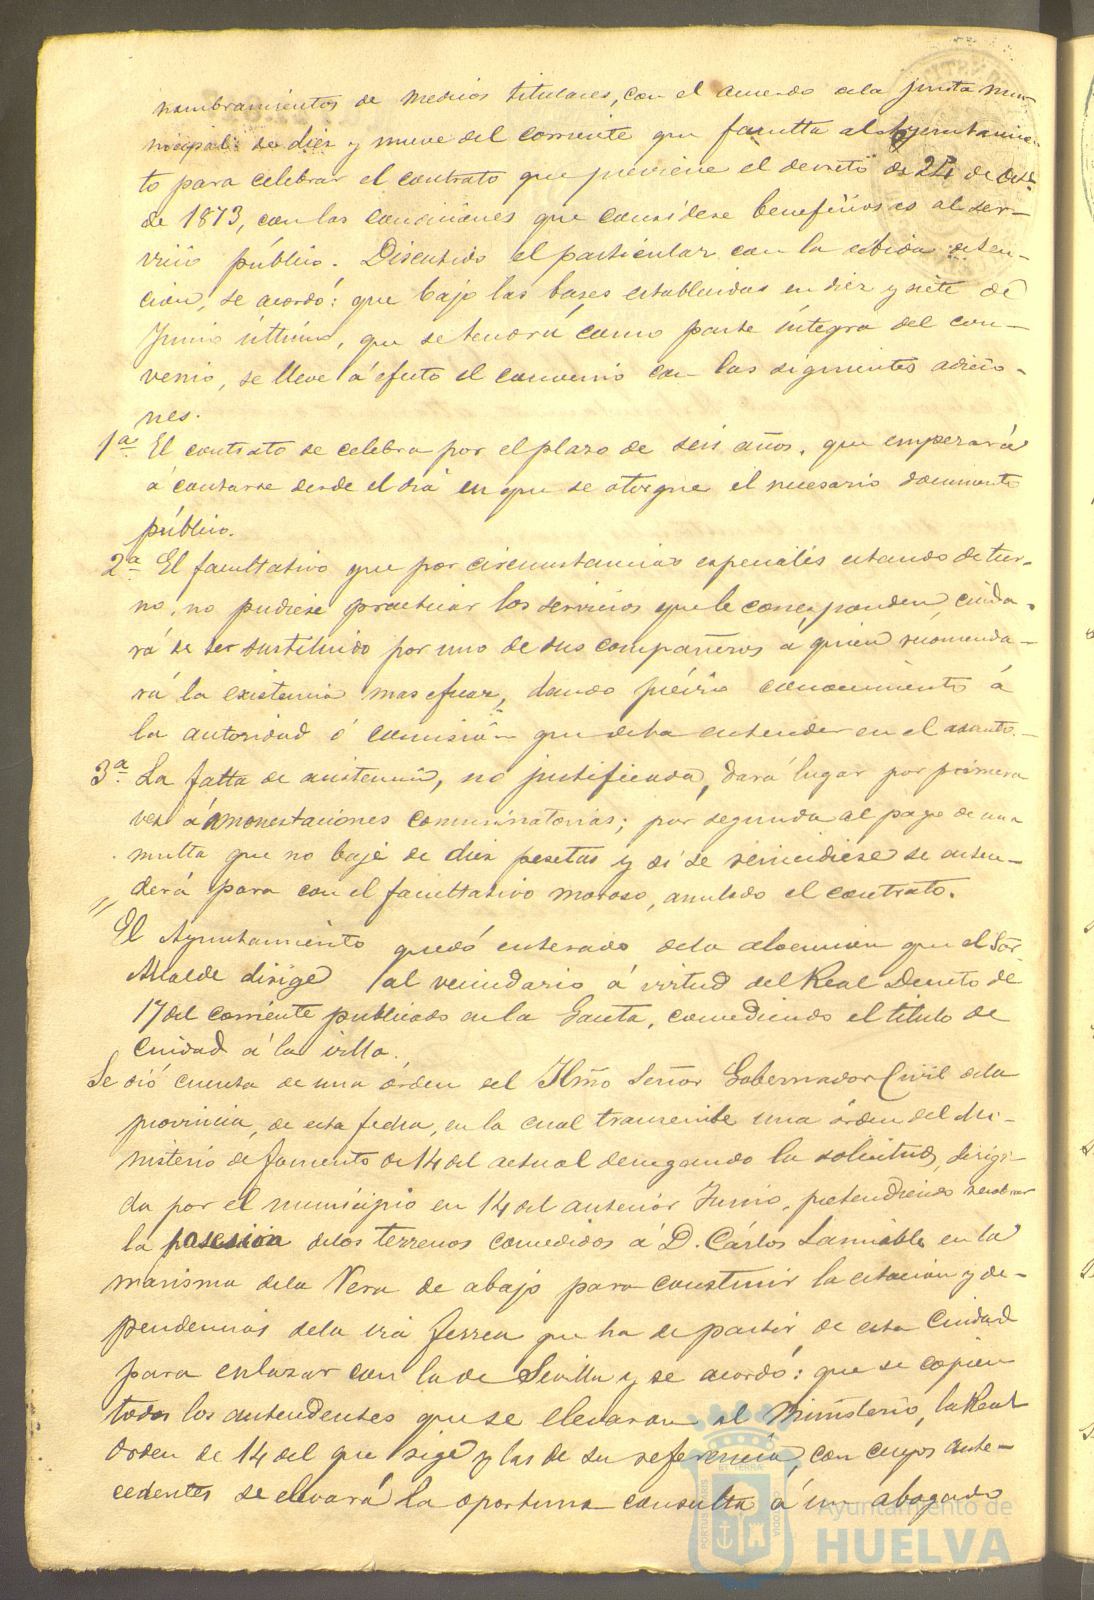 nombramientos de medicos titulares, con el acuerdo de la junta mu-
nicipal de diez y nueve del corriente que faculta al Ayuntamien-
to para celebrar el contrato que previene el decreto de 24 de Octe.
de 1873, con las condiciones que considere beneficiosas al ser-
vicio público. Discutido el particular con la debida aten-
cion, se acordó: que bajo las bases establecidas en diez y siete de
Junio último, que se tendrá como parte íntegra del con-
venio, se lleve á efecto el convenio con las siguientes adicio-
nes.
1ª El contrato se celebra por el plazo de seis años, que empezará
á contarse desde el dia en que se otorgue el necesario documento
público.
2ª El facultativo que por circunstancias especiales estando de tur-
no, no pudiese practicar los servicios que le corresponden, cuida-
rá de ser sustituido por uno de sus compañeros á quien recomenda-
rá la existencia mas eficaz, dando prévio conocimiento á
la autoridad ó comision que deba entender en el asunto.
3ª La falta de asistencia, no justificada, dará lugar por primera
vez á amonestaciones comminatorias; por segunda al pago de una
multa que no baje de diez pesetas y si se reincidiese se enten-
derá para con el facultativo moroso, anulado el contrato.
" El Ayuntamiento quedó enterado de la alocucion que el Sor.
Alcalde dirige al vecindario á virtud del Real Decreto de
17 del corriente publicado en la Gaceta, concediendo el título de
Ciudad á la villa.
Se dió cuenta de una órden del Ilmo Señor Gobernador Civil de la
provincia, de esta fecha, en la cual transcribe una órden del Mi-
nisterio de Fomento de 14 del actual denegando la solicitud, dirigi-
da por el municipio en 14 del anterior Junio, pretendiendo recobrar
la posesion de los terrenos concedidos á D. Cárlos Lamiable en la
marisma de la Vera de abajo para construir la estacion y de-
pendencias de la via ferrea que ha de partir de esta Ciudad
para enlazar con la de Sevilla y se acordó: que se copien
todos los antecedentes que se elevaron al Ministerio, la Real
órden de 14 del que rige y las de su referencia, con cuyos ante-
cedentes se elevará la oportuna consulta á un abogado
Ayuntamiento de
HUELVA
PORTUS MARIS
ET TERRA
CUSTODIA